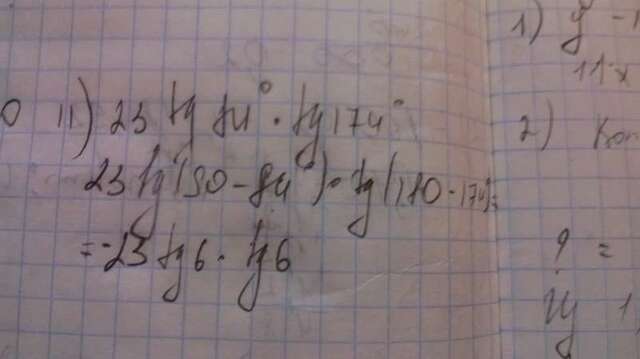 11) 23 tg 84° · tg 174°
23 tg(90 - 84°) · tg(180 - 174) =
= -23 tg 6 · tg 6
1) y
11x
2)
? =